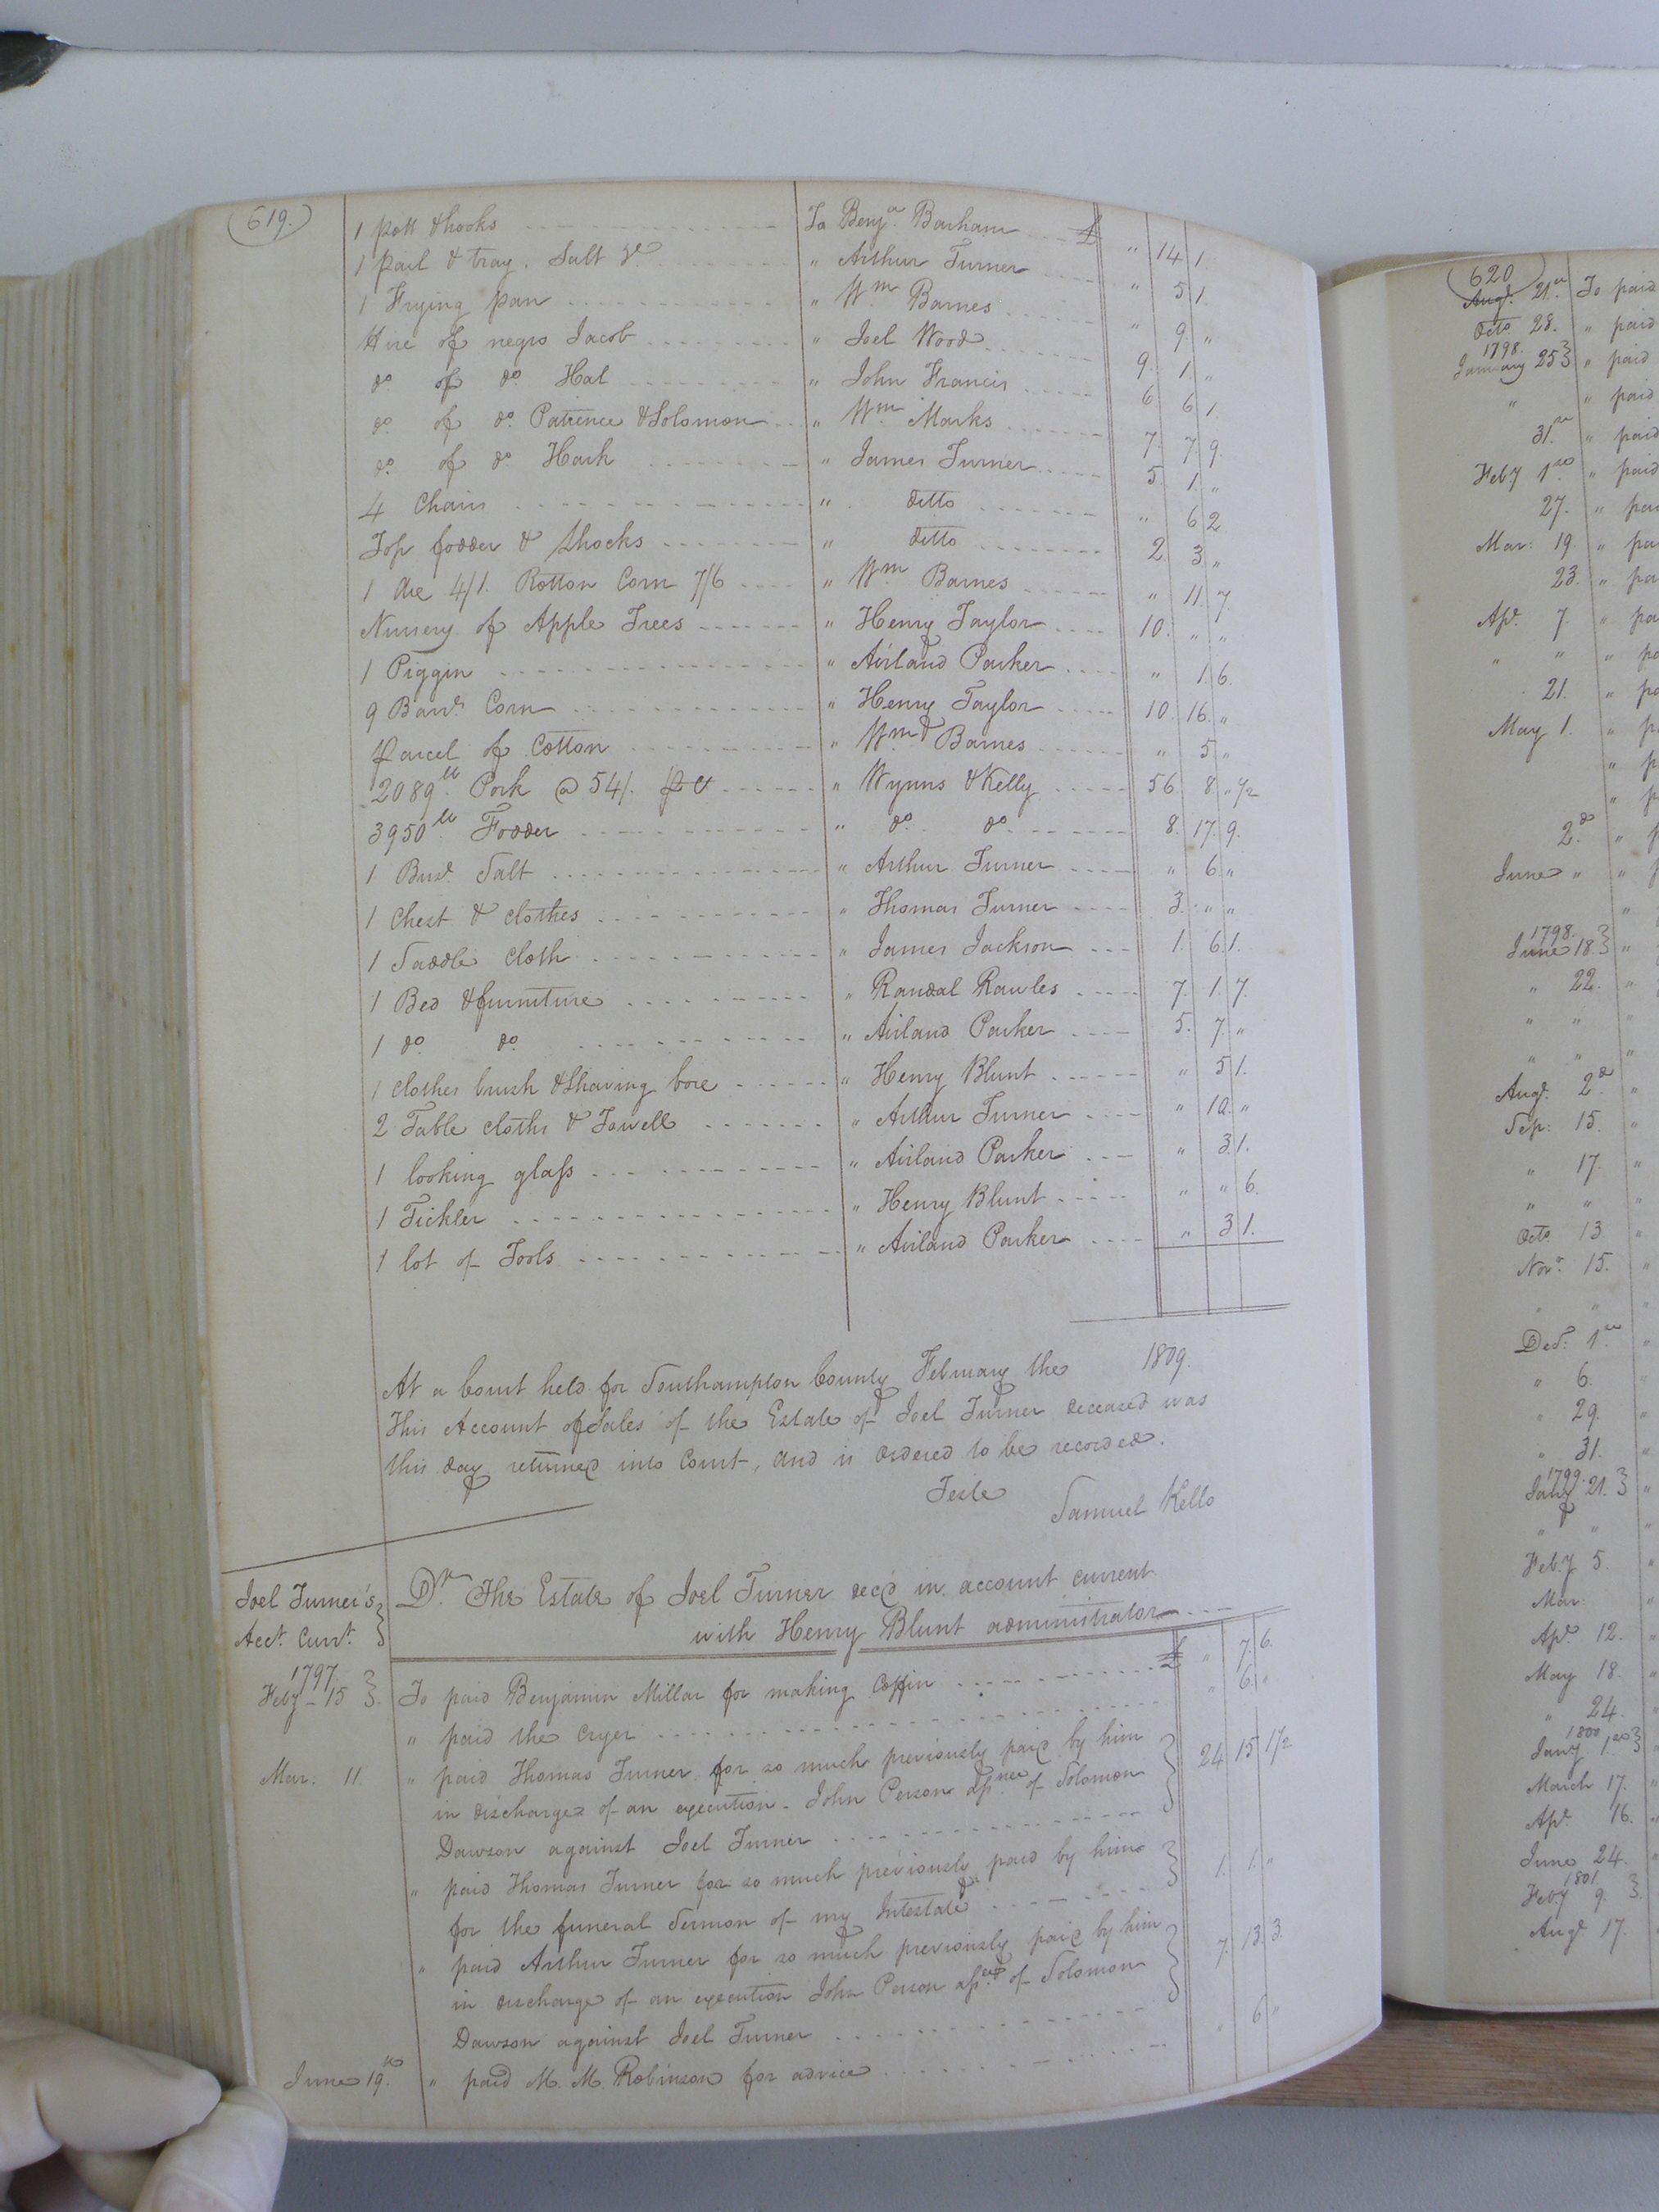 (619.)
1 pott & hooks To Benja. Barham £ " 14 1.
1 pail & tray. Salt &c " Arthur Turner " 5 1.
1 Frying pan " Wm Barnes " 9. "
Hire of negro Jacob " Joel Wood 9. 1. "
do. of do. Hal " John Francis 6. 6 1.
do. of do. Patience & Solomon " Wm. Marks 7. 7 9.
do. of do Hark " James Turner 5. 1. "
4 Chairs " ditto " 6 2
Top fodder & shocks " ditto 2. 3 "
1 Axe 4/1. Rotton Corn 7/6 " Wm Barnes " 11. 7.
Nursery of Apple Trees " Henry Taylor 10. " "
1 Piggin " Airland Parker " 1. 6.
9 Barrs. Corn " Henry Taylor 10. 16. "
Parcel of Cotton " Wm Barnes " 5 "
2089 lb. Pork @ 54/. " Wynns & Kelly 56 8 " 1/2
3950 lb Fodder " do. do. 8. 17. 9.
1 Busl. Salt " Arthur Turner " 6 "
1 Chest & clothes " Thomas Turner 3. " "
1 Saddle cloth " James Jackson 1. 6 1.
1 Bed & furniture " Randal Rawles 7. 1. 7
1 do. do. " Airland Parker 5. 7. "
1 clothes brush & shaving box " Henry Blunt " 5 1.
2 Table cloths & Towell " Arthur Turner " 10. "
1 looking glass " Airland Parker " 3 1.
1 Tickler " Henry Blunt " " 6.
1 lot of Tools " Airland Parker " 3 1.
At a Court held for Southampton County February the 1809.
This Account of Sales of the Estate of Joel Turner deceased was
this day returned into Court, and is ordered to be recorded.
Teste
Samuel Kello
Joel Turner's }
Acct. Curt. }
Dr. The Estate of Joel Turner decd in account current
with Henry Blunt administrator
1797.
Feby - 15 } To paid Benjamin Millar for making Coffin £ " 7. 6.
" paid the Cryer " 6. "
Mar. 11. " paid Thomas Turner for so much previously paid by him
in discharge of an execution - John Person of Solomon
Dawson against Joel Turner } 24 15 1 1/2
" paid Thomas Turner for so much previously paid by him
for the funeral Sermon of my Intestate } 1. 1. "
" paid Arthur Turner for so much previously paid by him
in discharge of an execution John Person of Solomon
Dawson against Joel Turner } 7. 13. 3.
June 19. " paid M. M. Robinson for advice " 6 "
(620
Augt. 21. To paid
Octo. 28. " paid
1798.
January 25 } " paid
" " paid
31. " paid
Feby 1. " paid
27. "
Mar: 19. "
23. "
Apl. 7. "
" " "
21. "
May 1. "
"
"
2d. "
June " "
"
1798.
June 18. } "
" 22. "
" " "
" " "
Augt. 2d "
Sep: 15. "
" 17. "
" " "
Octo. 13. "
Novr. 15. "
" "
Decr. 1
" 6.
" 29.
" 31.
1799.
Jany 21. } "
" " "
Feby 5.
Mar:
Apl. 12.
May 18.
" 24.
1800
Jany 1 }
March 17.
Apl. 16.
June 24.
1801
Feby 9. }
Augt 17.